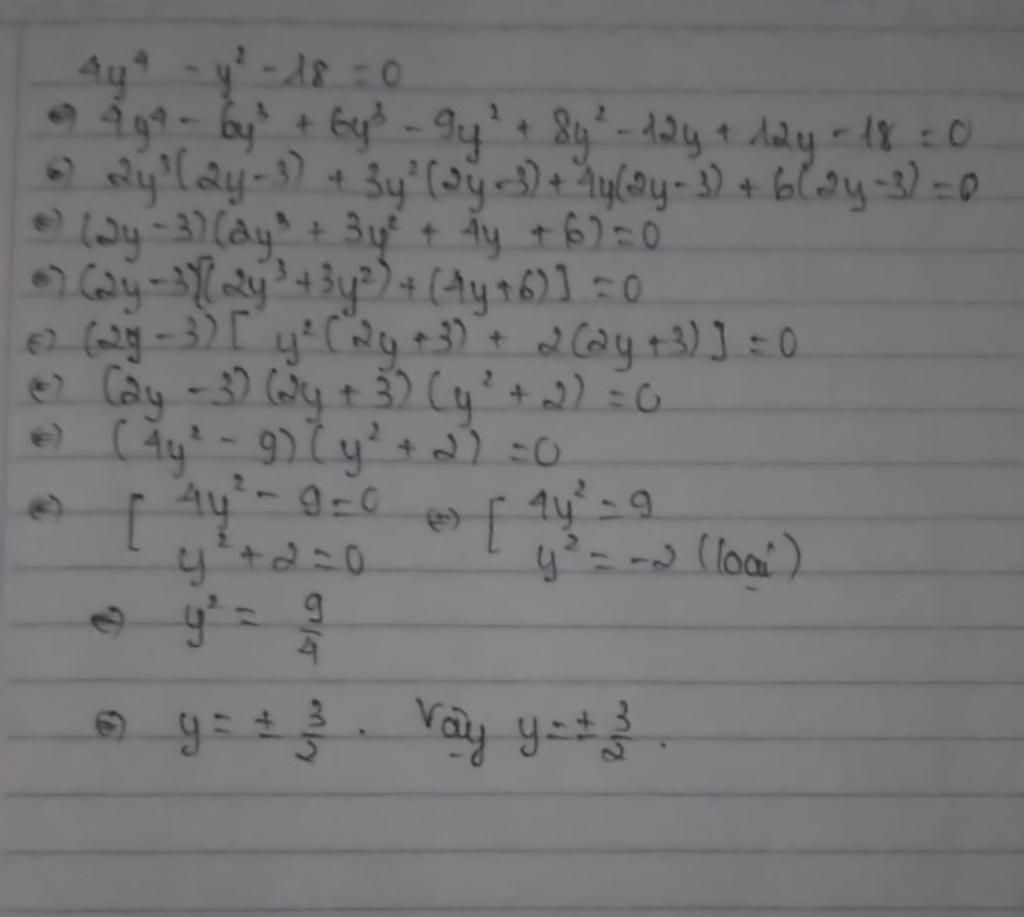 4y⁴ - y² - 18 = 0
⇔ 4y⁴ - 6y³ + 6y³ - 9y² + 8y² - 12y + 12y - 18 = 0
⇔ 2y³(2y-3) + 3y²(2y-3) + 4y(2y-3) + 6(2y-3) = 0
⇔ (2y-3)(2y³ + 3y² + 4y + 6) = 0
⇔ (2y-3)[(2y³+3y²) + (4y+6)] = 0
⇔ (2y-3)[y²(2y+3) + 2(2y+3)] = 0
⇔ (2y-3)(2y+3)(y²+2) = 0
⇔ (4y²-9)(y²+2) = 0
⇔ [ 4y² - 9 = 0 ⇔ [ 4y² = 9
y² + 2 = 0 y² = -2 (loại)
⇔ y² = 9/4
⇔ y = ± 3/2 . Vậy y = ± 3/2 .